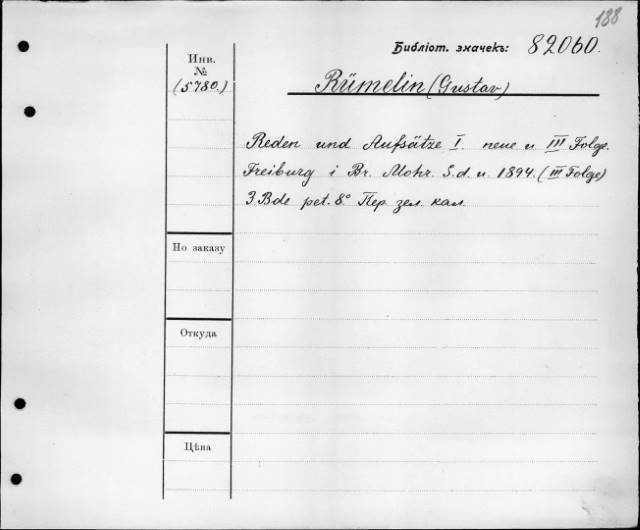 188
Библіот. значекъ: 82060.
Инв.
№
(5780.)
Rümelin (Gustav)
Reden und Aufsätze I. neue u. III Folge.
Freiburg i Br. Mohr. S.d. u. 1894. (III Folge)
3 Bde pet. 8° Пер. зел. кал.
По заказу
Откуда
Цѣна